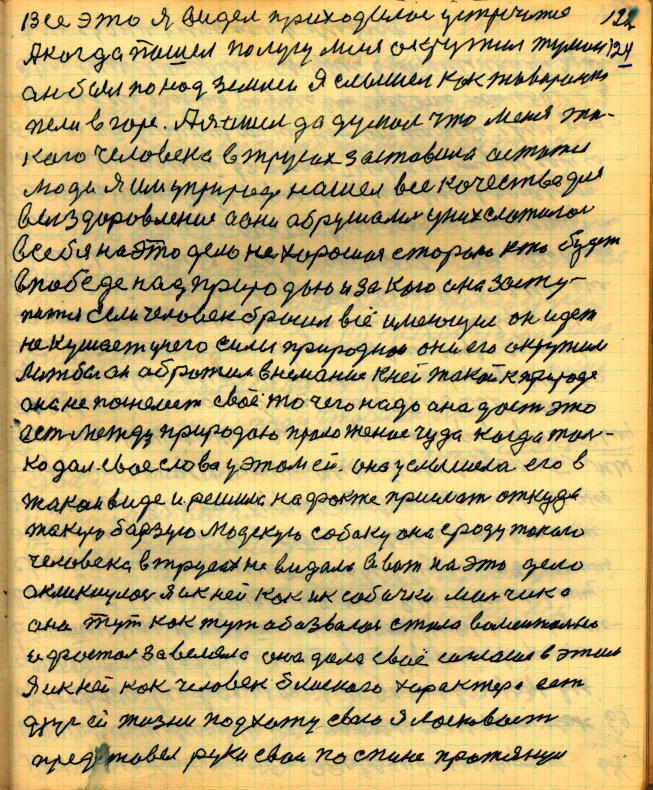 Все это я видел приходилос устречатся 122
А когда пошел по лугу меня окружил туман 124
он был по над землей Я слышел как жаваранки
пели в горе. А я шел да думал что меня та-
кого человека в трусах заставила остатся
люди Я им у природе нашел все качества для
виздоровление а они обрушалис у них сложилос
всебя на это дело не хорошая сторона кто будет
в победе над природою и за кого она засту-
питса если человек бросил всё имеющие он идет
не кушает у него силы природное они его окружили
лиж бы он обротил внемание к ней такой к природе
она не пожелеет своё то чего надо она даст это
ест между природою проложение чуда когда тол-
ко дал свое слова у этом ей. она услышела его в
таком виде и решила на факте прислат откуда
такую барзую людскую собаку она сроду такого
человека в трусах не видала И вот на это дело
окликнулос Я и к ней как к собачки малчика
она тут как тут абазвалас стала воментално
и фостом завеляла она дала своё согласие в этом
Я и к ней как человек блиского характера ест
друг ей жизни подхожу сваю Я ласковост
представел руки свои по спине протянул